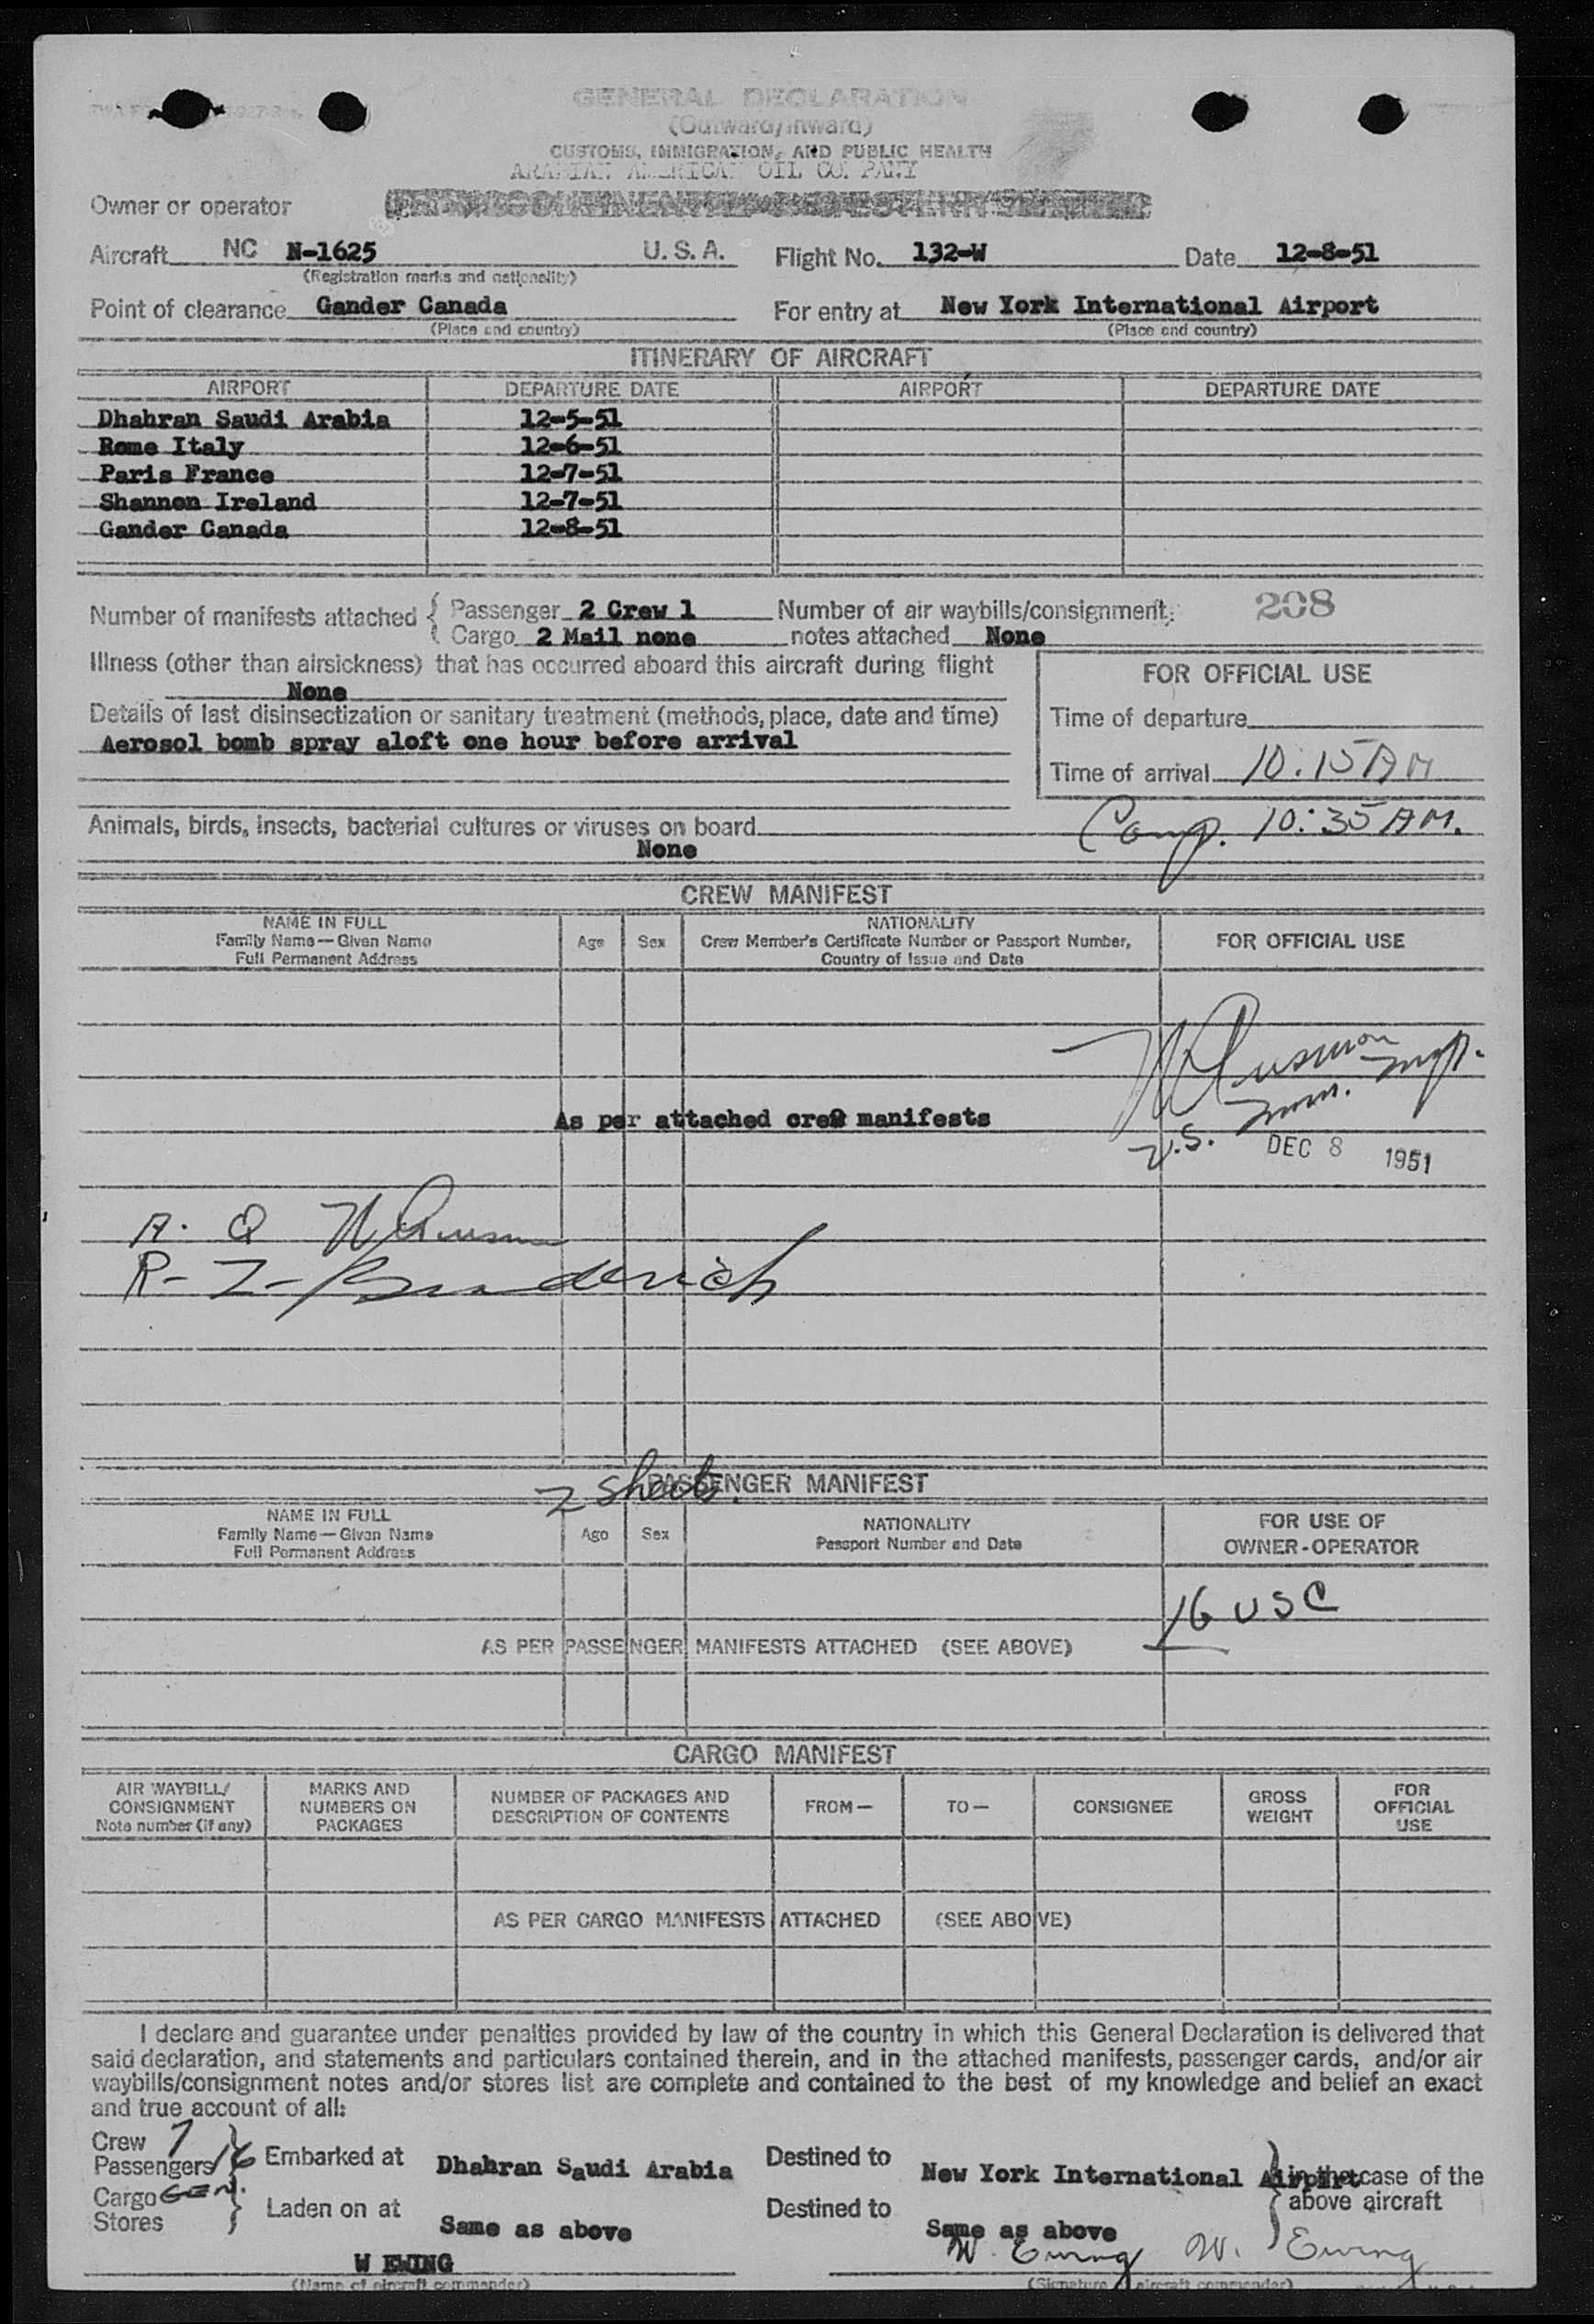 GENERAL DECLARATION
(Outward/Inward)
CUSTOMS, IMMIGRATION, AND PUBLIC HEALTH
ARABIAN AMERICAN OIL COMPANY
Owner or operator
Aircraft NC N-1625 U.S.A. Flight No. 132-W Date 12-8-51
(Registration marks and nationality)
Point of clearance Gander Canada For entry at New York International Airport
(Place and country) (Place and country)
ITINERARY OF AIRCRAFT
AIRPORT DEPARTURE DATE AIRPORT DEPARTURE DATE
Dhahran Saudi Arabia 12-5-51
Rome Italy 12-6-51
Paris France 12-7-51
Shannon Ireland 12-7-51
Gander Canada 12-8-51
Number of manifests attached { Passenger 2 Crew 1 Number of air waybills/consignment 208
Cargo 2 Mail none notes attached None
Illness (other than airsickness) that has occurred aboard this aircraft during flight
None
FOR OFFICIAL USE
Details of last disinsectization or sanitary treatment (methods, place, date and time)
Time of departure
Aerosol bomb spray aloft one hour before arrival
Time of arrival 10:15 AM
Comp. 10:35 AM.
Animals, birds, insects, bacterial cultures or viruses on board
None
CREW MANIFEST
NAME IN FULL
Family Name—Given Name
Full Permanent Address
Age
Sex
NATIONALITY
Crew Member's Certificate Number or Passport Number,
Country of Issue and Date
FOR OFFICIAL USE
As per attached crew manifests
U.S. Imm. Insp.
DEC 8 1951
A. Q
R-I- Broderick
2 Sheets.
PASSENGER MANIFEST
NAME IN FULL
Family Name—Given Name
Full Permanent Address
Age
Sex
NATIONALITY
Passport Number and Date
FOR USE OF
OWNER-OPERATOR
16 USC
AS PER PASSENGER MANIFESTS ATTACHED (SEE ABOVE)
CARGO MANIFEST
AIR WAYBILL/
CONSIGNMENT
Note number (if any)
MARKS AND
NUMBERS ON
PACKAGES
NUMBER OF PACKAGES AND
DESCRIPTION OF CONTENTS
FROM—
TO—
CONSIGNEE
GROSS
WEIGHT
FOR
OFFICIAL
USE
AS PER CARGO MANIFESTS ATTACHED (SEE ABOVE)
I declare and guarantee under penalties provided by law of the country in which this General Declaration is delivered that
said declaration, and statements and particulars contained therein, and in the attached manifests, passenger cards, and/or air
waybills/consignment notes and/or stores list are complete and contained to the best of my knowledge and belief an exact
and true account of all:
Crew 7
Passengers 16 } Embarked at Dhahran Saudi Arabia Destined to New York International Airport } in the case of the
above aircraft
Cargo GEN.
Stores } Laden on at Same as above Destined to Same as above
W EWING W. Ewing W. Ewing
(Name of aircraft commander) (Signature aircraft commander)